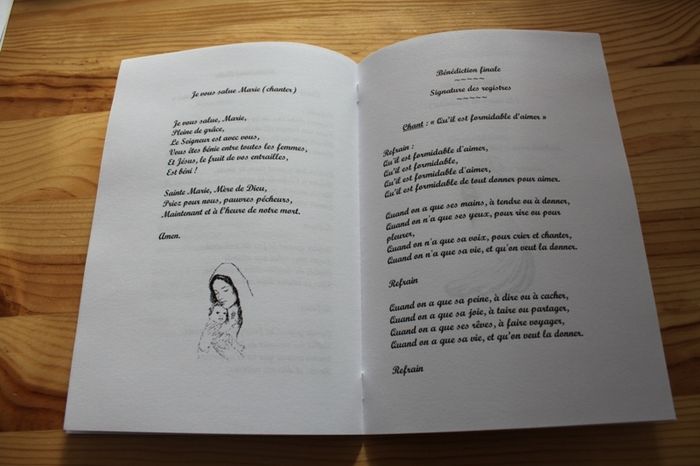 Je vous salue Marie (chanter)
Je vous salue, Marie,
Pleine de grâce,
Le Seigneur est avec vous,
Vous êtes bénie entre toutes les femmes,
Et Jésus, le fruit de vos entrailles,
Est béni !
Sainte Marie, Mère de Dieu,
Priez pour nous, pauvres pécheurs,
Maintenant et à l'heure de notre mort.
Amen.
Bénédiction finale
~~~~~
Signature des registres
~~~~~
Chant : « Qu'il est formidable d'aimer »
Refrain :
Qu'il est formidable d'aimer,
Qu'il est formidable,
Qu'il est formidable d'aimer,
Qu'il est formidable de tout donner pour aimer.
Quand on a que ses mains, à tendre ou à donner,
Quand on n'a que ses yeux, pour rire ou pour
pleurer,
Quand on n'a que sa voix, pour crier et chanter,
Quand on n'a que sa vie, et qu'on veut la donner.
Refrain
Quand on a que sa peine, à dire ou à cacher,
Quand on a que sa joie, à taire ou partager,
Quand on a que ses rêves, à faire voyager,
Quand on a que sa vie, et qu'on veut la donner.
Refrain